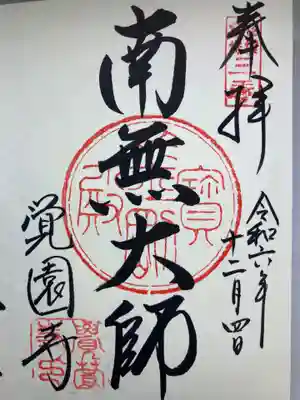 奉拝
令和六年
十二月四日
南無大師
覚園寺